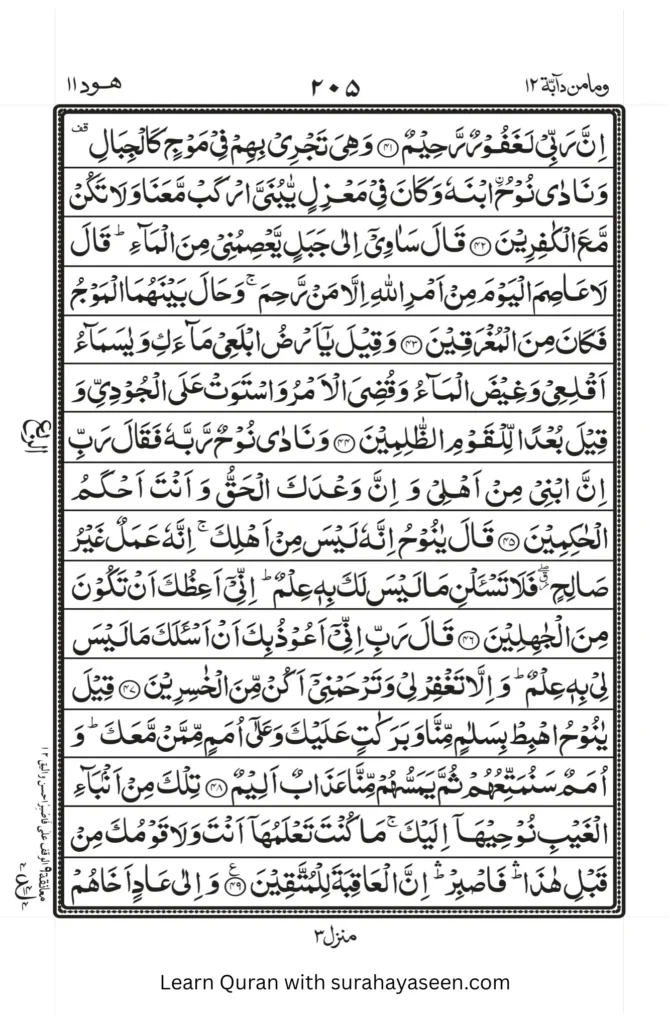 وما من دآبّة ١٢ ٢٠٥ هود ١١
اِنَّ رَبِّىْ لَغَفُوْرٌ رَّحِيْمٌ ﴿٤١﴾ وَهِىَ تَجْرِىْ بِهِمْ فِىْ مَوْجٍ كَالْجِبَالِ قف
وَنَادٰى نُوْحُ ۨ ابْنَهٗ وَكَانَ فِىْ مَعْزِلٍ يّٰبُنَىَّ ارْكَبْ مَّعَنَا وَلَا تَكُنْ
مَّعَ الْكٰفِرِيْنَ ﴿٤٢﴾ قَالَ سَاٰوِىْۤ اِلٰى جَبَلٍ يَّعْصِمُنِىْ مِنَ الْمَآءِ ؕ قَالَ
لَا عَاصِمَ الْيَوْمَ مِنْ اَمْرِ اللّٰهِ اِلَّا مَنْ رَّحِمَ ۚ وَحَالَ بَيْنَهُمَا الْمَوْجُ
فَكَانَ مِنَ الْمُغْرَقِيْنَ ﴿٤٣﴾ وَقِيْلَ يٰۤاَرْضُ ابْلَعِىْ مَآءَكِ وَيٰسَمَآءُ
اَقْلِعِىْ وَغِيْضَ الْمَآءُ وَقُضِىَ الْاَمْرُ وَاسْتَوَتْ عَلَى الْجُوْدِىِّ وَ
قِيْلَ بُعْدًا لِّلْقَوْمِ الظّٰلِمِيْنَ ﴿٤٤﴾ وَنَادٰى نُوْحٌ رَّبَّهٗ فَقَالَ رَبِّ
اِنَّ ابْنِىْ مِنْ اَهْلِىْ وَ اِنَّ وَعْدَكَ الْحَقُّ وَ اَنْتَ اَحْكَمُ
الْحٰكِمِيْنَ ﴿٤٥﴾ قَالَ يٰنُوْحُ اِنَّهٗ لَيْسَ مِنْ اَهْلِكَ ۚ اِنَّهٗ عَمَلٌ غَيْرُ
صَالِحٍ فَلَا تَسْئَلْنِ مَا لَيْسَ لَكَ بِهٖ عِلْمٌ ؕ اِنِّىْۤ اَعِظُكَ اَنْ تَكُوْنَ
مِنَ الْجٰهِلِيْنَ ﴿٤٦﴾ قَالَ رَبِّ اِنِّىْۤ اَعُوْذُ بِكَ اَنْ اَسْئَلَكَ مَا لَيْسَ
لِىْ بِهٖ عِلْمٌ ؕ وَ اِلَّا تَغْفِرْ لِىْ وَتَرْحَمْنِىْۤ اَكُنْ مِّنَ الْخٰسِرِيْنَ ﴿٤٧﴾ قِيْلَ
يٰنُوْحُ اهْبِطْ بِسَلٰمٍ مِّنَّا وَبَرَكٰتٍ عَلَيْكَ وَعَلٰٓى اُمَمٍ مِّمَّنْ مَّعَكَ ؕ وَ
اُمَمٌ سَنُمَتِّعُهُمْ ثُمَّ يَمَسُّهُمْ مِّنَّا عَذَابٌ اَلِيْمٌ ﴿٤٨﴾ تِلْكَ مِنْ اَنْۢبَآءِ
الْغَيْبِ نُوْحِيْهَاۤ اِلَيْكَ ۚ مَا كُنْتَ تَعْلَمُهَاۤ اَنْتَ وَلَا قَوْمُكَ مِنْ
قَبْلِ هٰذَا ۛؕ فَاصْبِرْ ۛؕ اِنَّ الْعَاقِبَةَ لِلْمُتَّقِيْنَ ﴿٤٩﴾ ع وَ اِلٰى عَادٍ اَخَاهُمْ
منزل ٣
Learn Quran with surahayaseen.com